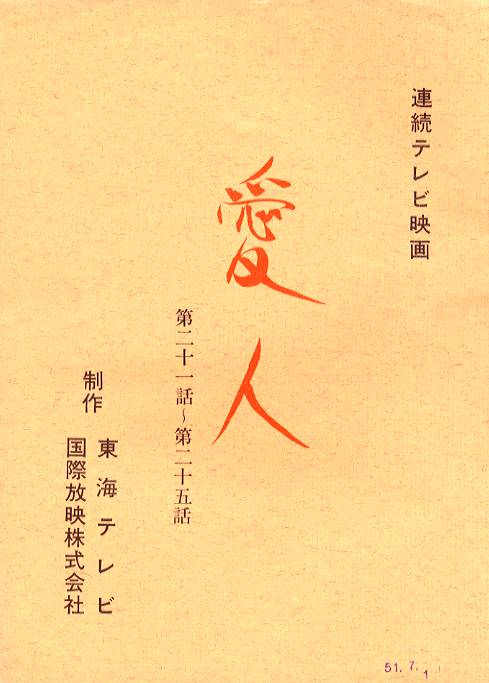 連続テレビ映画
愛人
第二十一話~第二十五話
制作
東海テレビ
国際放映株式会社
51.7.1